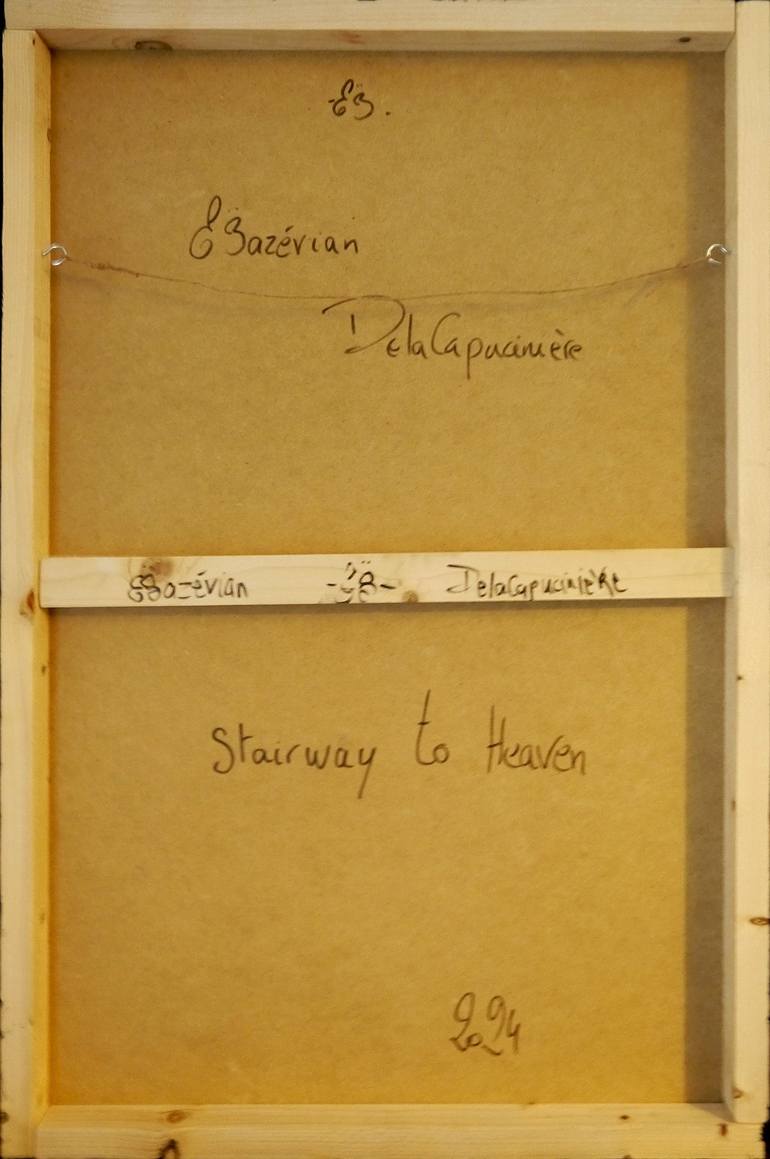 -EB.
EBazévian
DelaCapucinière
EBazévian -EB- DelaCapucinière
Stairway to Heaven
2024